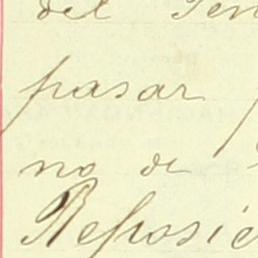 del Ten
pasar
no de
Reposic